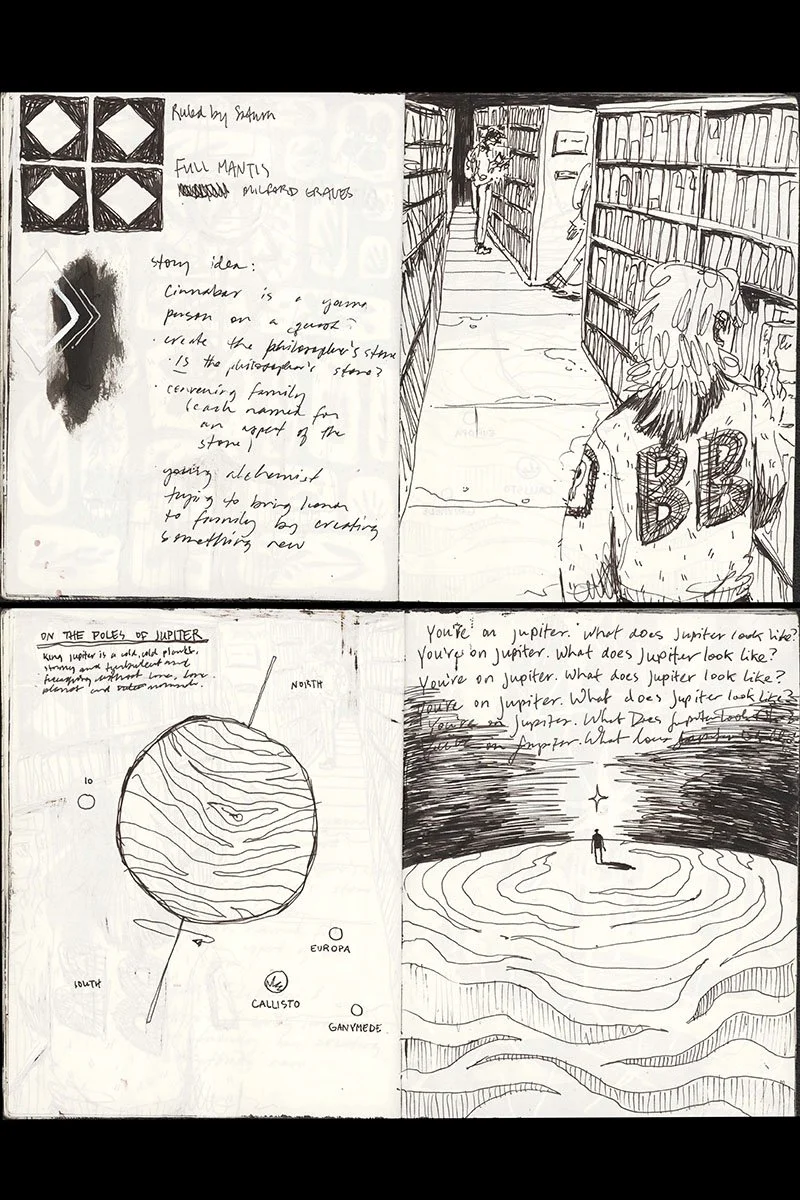 Ruled by Saturn
FULL MANTIS
MILFORD GRAVES
story idea:
Cinnabar is a young
person on a quest?
· create the philosopher's stone
· IS the philosopher's stone?
· convening family
(each named for
an aspect of the
stone)
· young alchemist
trying to bring honor
to family by creating
something new
BB
ON THE POLES OF JUPITER
King Jupiter is a cold, old planet,
strong and turbulent and
without love, love
planet and
NORTH
IO
EUROPA
SOUTH
CALLISTO
GANYMEDE
You're on Jupiter. What does Jupiter look like?
You're on Jupiter. What does Jupiter look like?
You're on Jupiter. What does Jupiter look like?
You're on Jupiter. What does Jupiter look like?
You're on Jupiter. What Does Jupiter look
on Jupiter. What